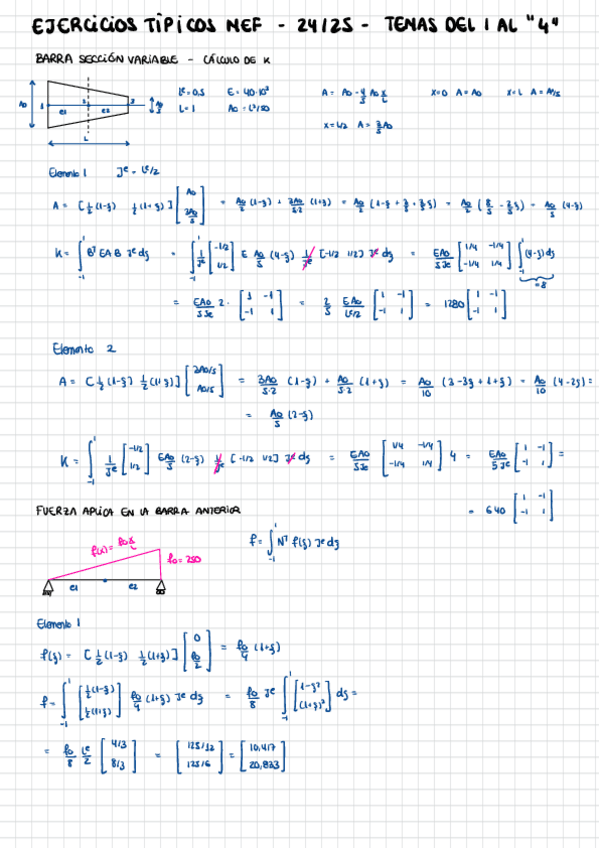 EJERCICIOS TÍPICOS MEF - 24/25 - TEMAS DEL 1 AL "4"
BARRA SECCIÓN VARIABLE - CÁLCULO DE K
Lᵉ=0,5 E=40·10³ A = A₀ - 4/5 A₀ x/L x=0 A=A₀ x=L A=A₀/5
L=1 A₀=L²/50
x=L/2 A=3/5 A₀
A₀ 1 e1 2 e2 3 A₀/5
L
Elemento 1 Jᵉ = Lᵉ/2
A = [1/2(1-ξ) 1/2(1+ξ)] [A₀ 3A₀/5] = A₀/2 (1-ξ) + 3A₀/5·2 (1+ξ) = A₀/2 (1-ξ + 3/5 + 3/5 ξ) = A₀/2 (8/5 - 2/5 ξ) = A₀/5 (4-ξ)
K = ∫₋₁¹ Bᵀ E A B Jᵉ dξ = ∫₋₁¹ 1/Jᵉ [-1/2 1/2] E A₀/5 (4-ξ) 1/Jᵉ [-1/2 1/2] Jᵉ dξ = EA₀/5Jᵉ [1/4 -1/4 -1/4 1/4] ∫₋₁¹ (4-ξ) dξ
=8
= EA₀/5Jᵉ 2· [1 -1 -1 1] = 2/5 EA₀/Lᵉ/2 [1 -1 -1 1] = 1280 [1 -1 -1 1]
Elemento 2
A = [1/2(1-ξ) 1/2(1+ξ)] [3A₀/5 A₀/5] = 3A₀/5·2 (1-ξ) + A₀/5·2 (1+ξ) = A₀/10 (3-3ξ+1+ξ) = A₀/10 (4-2ξ) =
= A₀/5 (2-ξ)
K = ∫₋₁¹ 1/Jᵉ [-1/2 1/2] EA₀/5 (2-ξ) 1/Jᵉ [-1/2 1/2] Jᵉ dξ = EA₀/5Jᵉ [1/4 -1/4 -1/4 1/4] 4 = EA₀/5Jᵉ [1 -1 -1 1] =
= 640 [1 -1 -1 1]
FUERZA APLICA EN LA BARRA ANTERIOR
f(x) = f₀x/L f₀=250 f = ∫₋₁¹ Nᵀ f(ξ) Jᵉ dξ
e1 e2
Elemento 1
f(ξ) = [1/2(1-ξ) 1/2(1+ξ)] [0 f₀/2] = f₀/4 (1+ξ)
f = ∫₋₁¹ [1/2(1-ξ) 1/2(1+ξ)] f₀/4 (1+ξ) Jᵉ dξ = f₀/8 Jᵉ ∫₋₁¹ [1-ξ² (1+ξ)²] dξ =
= f₀/8 Lᵉ/2 [4/3 8/3] = [125/12 125/6] = [10,417 20,833]